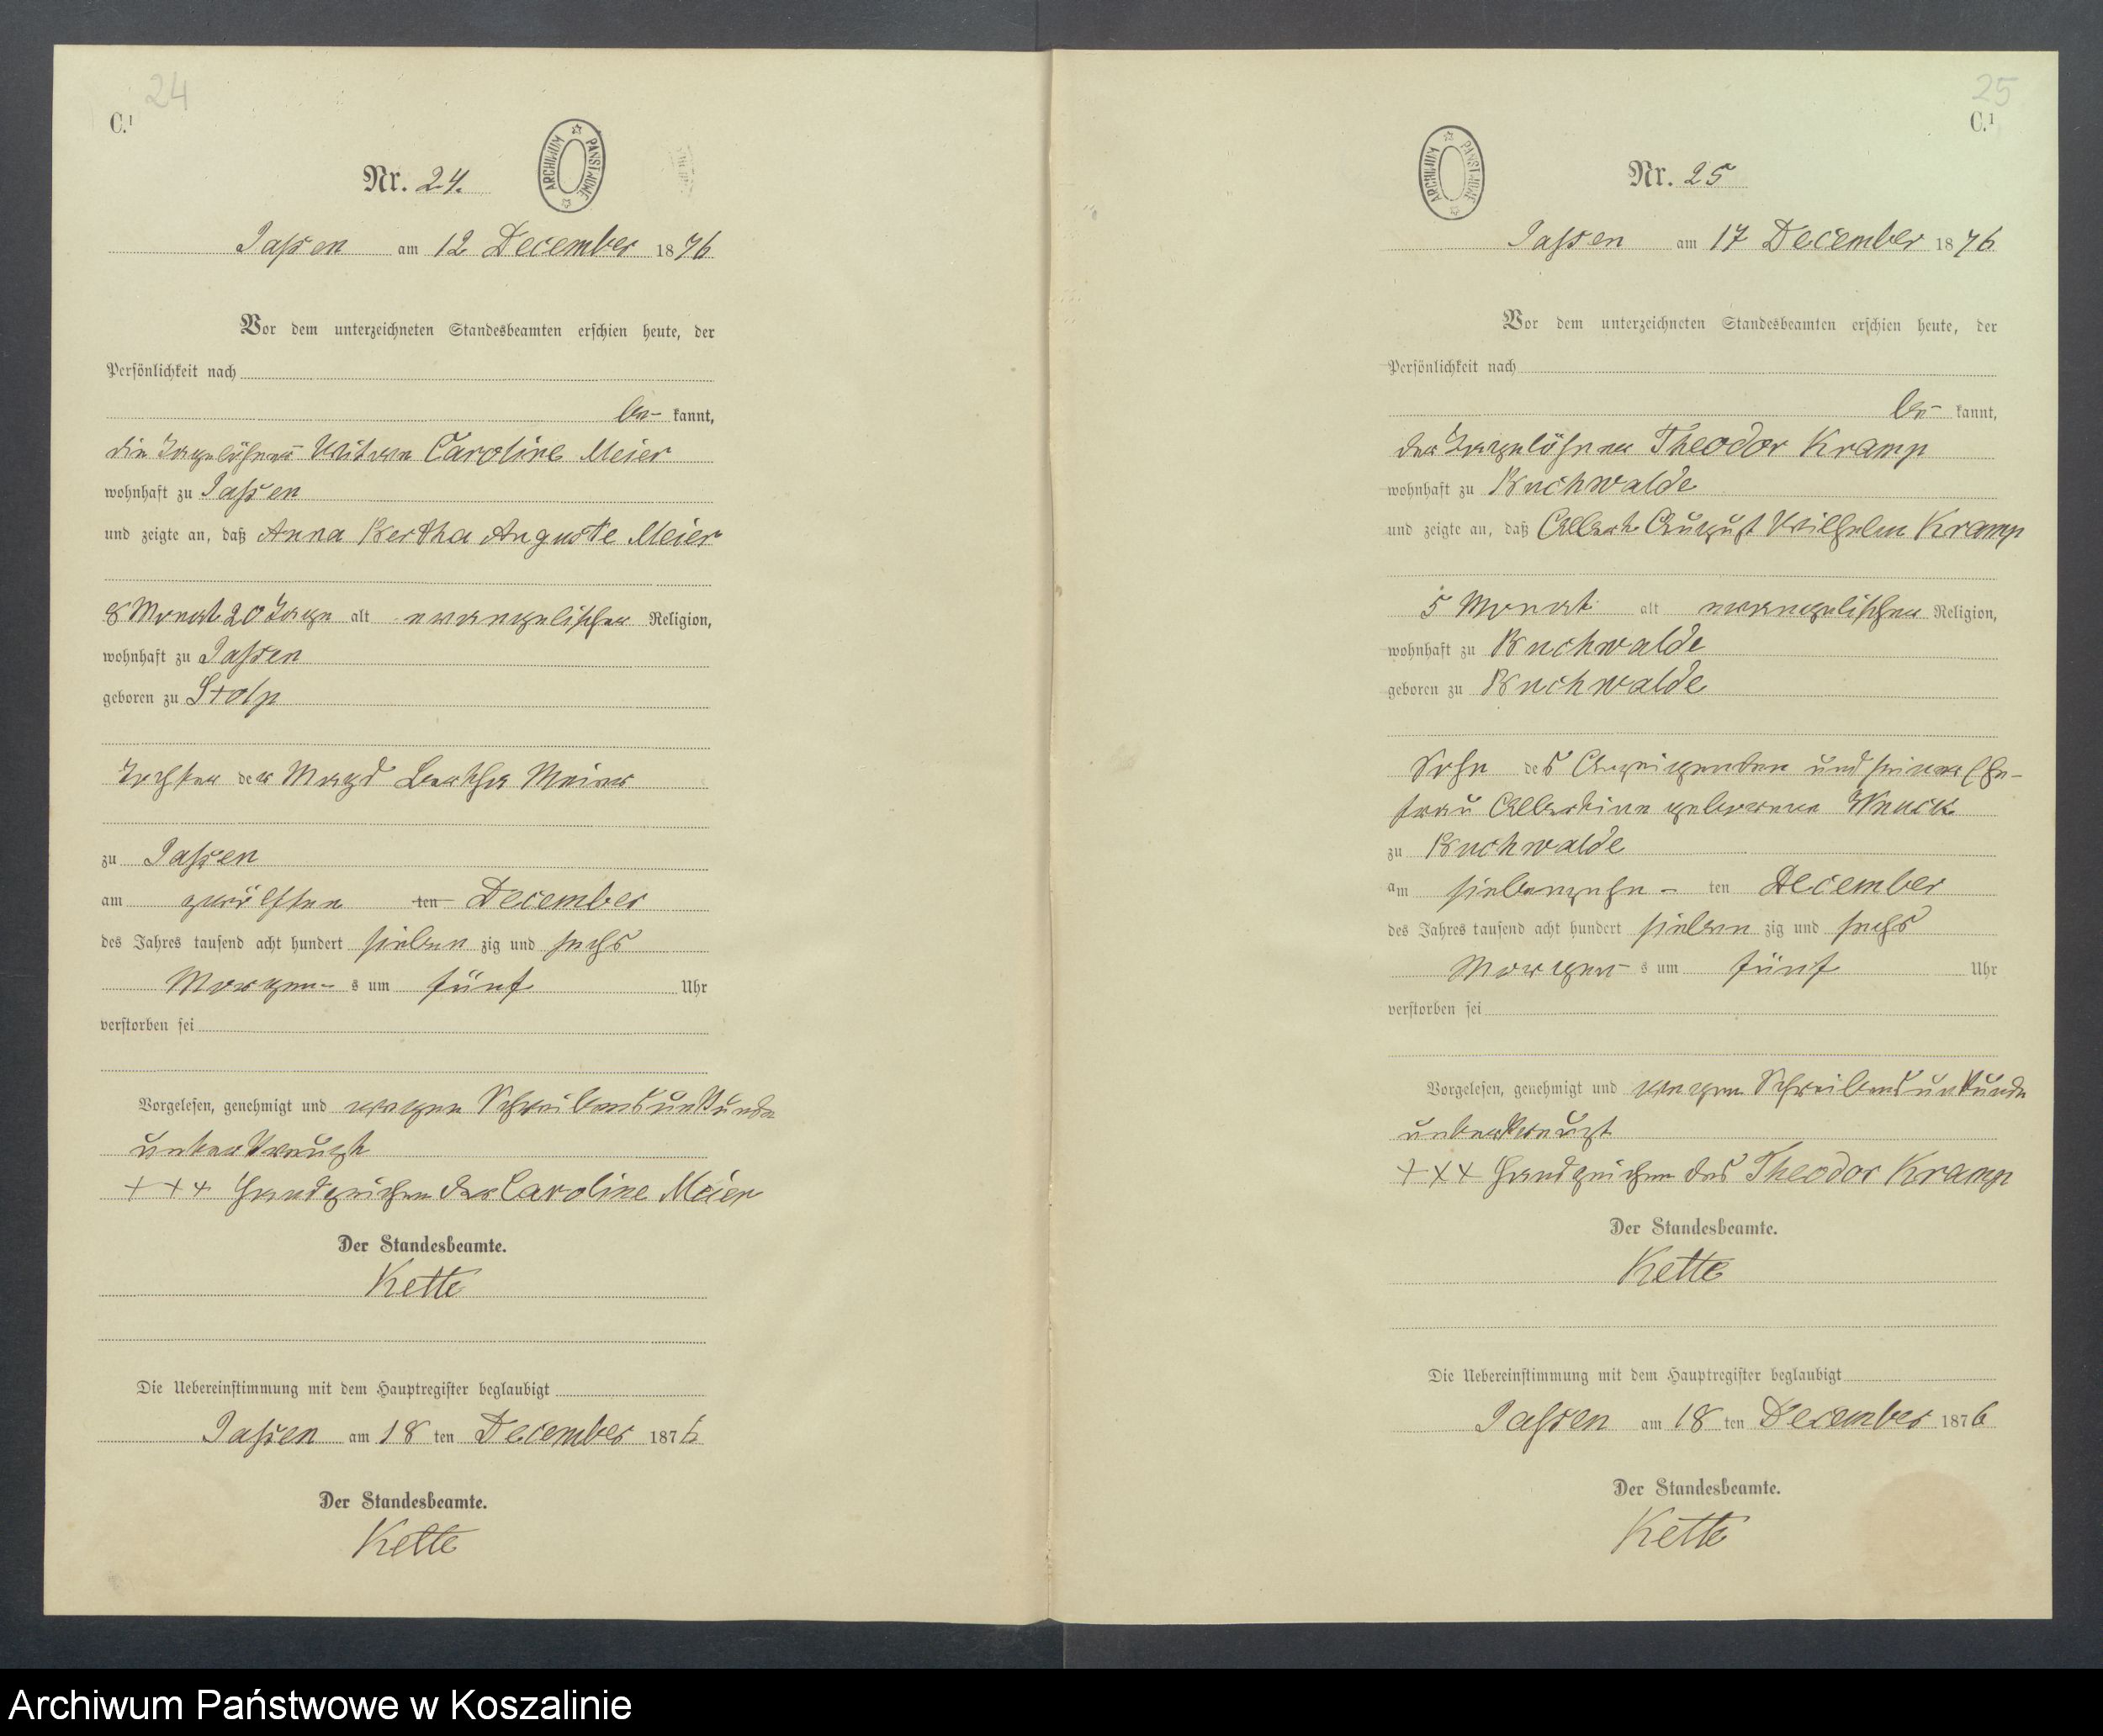 24
C.¹
Nr. 24.
ARCHIWUM PAŃSTWOWE
Jassen am 12 December 1876
Vor dem unterzeichneten Standesbeamten erschien heute, der
Persönlichkeit nach
be- kannt,
die Tagelöhner- Witwe Caroline Meier
wohnhaft zu Jassen
und zeigte an, daß Anna Bertha Auguste Meier
8 Monat 20 Tage alt evangelischer Religion,
wohnhaft zu Jassen
geboren zu Stolp
Tochter der Magd Bertha Meier
zu Jassen
am zwölften ten December
des Jahres tausend acht hundert sieben zig und sechs
Morgen- s um fünf Uhr
verstorben sei
Vorgelesen, genehmigt und wegen Schreibensunkunde
unterkreuzt
+++ Handzeichen der Caroline Meier
Der Standesbeamte.
Kette
Die Uebereinstimmung mit dem Hauptregister beglaubigt
Jassen am 18 ten December 1876
Der Standesbeamte.
Kette
25
C.¹
ARCHIWUM PAŃSTWOWE
Nr. 25
Jassen am 17 December 1876
Vor dem unterzeichneten Standesbeamten erschien heute, der
Persönlichkeit nach
be- kannt,
der Tagelöhner Theodor Kramp
wohnhaft zu Buchwalde
und zeigte an, daß Albert August Wilhelm Kramp
5 Monat alt evangelischer Religion,
wohnhaft zu Buchwalde
geboren zu Buchwalde
Sohn des Anzeigenden und seiner Ehe-
frau Albertine geborene
zu Buchwalde
am siebenzehn- ten December
des Jahres tausend acht hundert sieben zig und sechs
Morgen- s um fünf Uhr
verstorben sei
Vorgelesen, genehmigt und wegen Schreibensunkunde
unterkreuzt
+++ Handzeichen des Theodor Kramp
Der Standesbeamte.
Kette
Die Uebereinstimmung mit dem Hauptregister beglaubigt
Jassen am 18 ten December 1876
Der Standesbeamte.
Kette
Archiwum Państwowe w Koszalinie